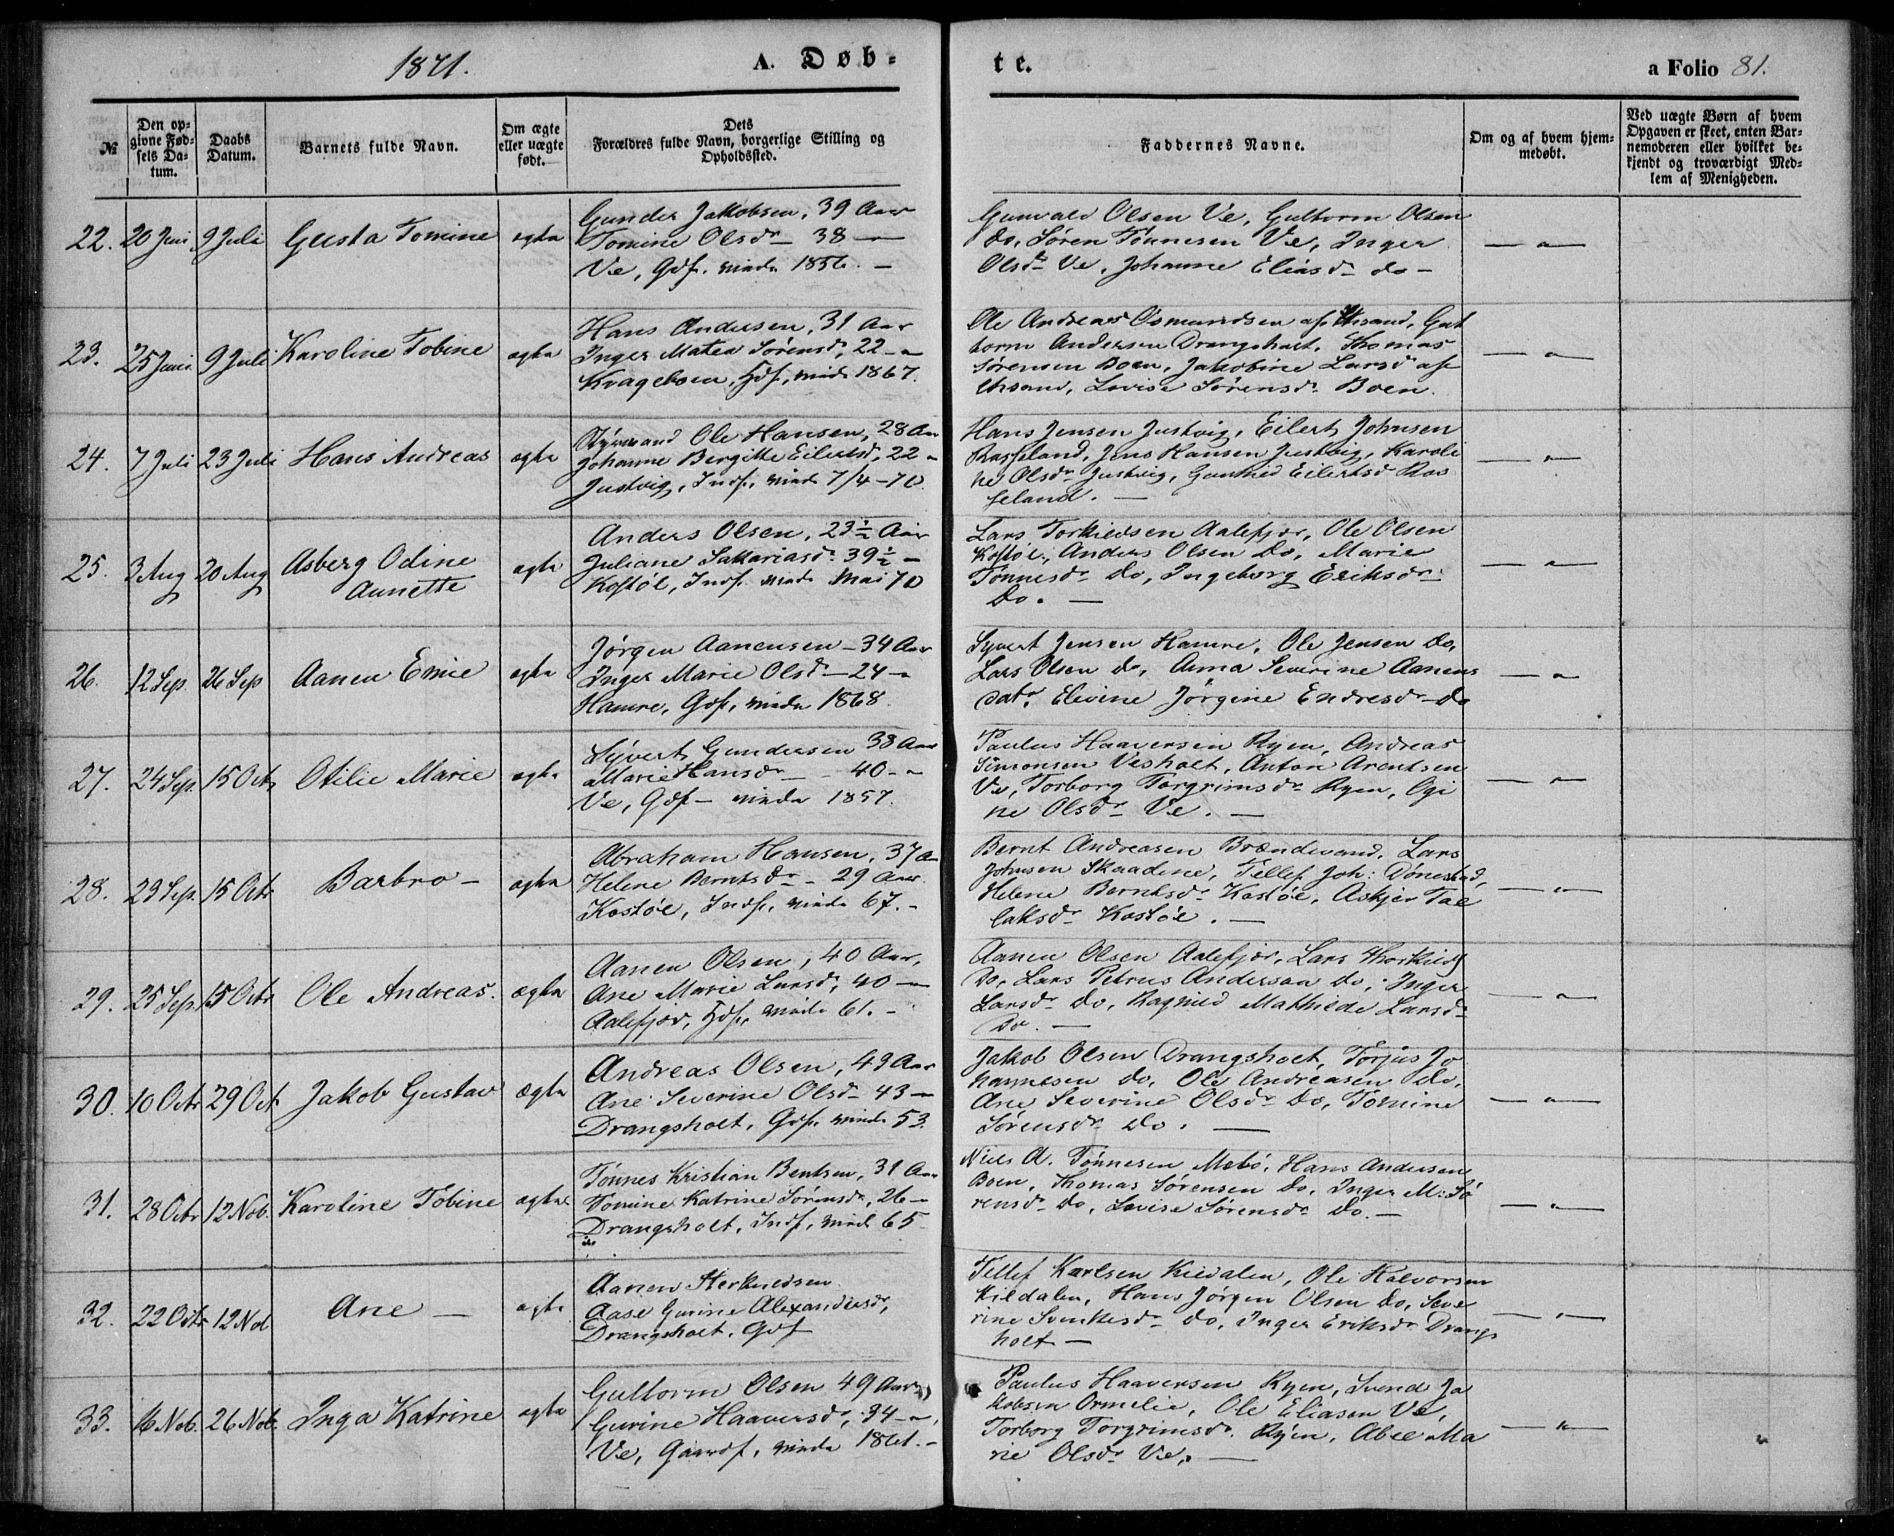 1871.
A. Døb-
te.
a Folio 81.
№
Den op-
givne Fød-
sels Da-
tum.
Daabs
Datum.
Barnets fulde Navn.
Om ægte
eller uægte
født.
Dets
Forældres fulde Navn, borgerlige Stilling og
Opholdssted.
Faddernes Navne.
Om og af hvem hjem-
medøbt.
Ved uægte Børn af hvem
Opgaven er skeet, enten Bar-
nemoderen eller hvilket be-
kjendt og troværdigt Med-
lem af Menigheden.
22. 20 Juni 9 Juli Gusta Tomine ægte
Gunder Jakobsen, 39 Aar
Tomine Olsdr 38 —
Ve, Gdf. viede 1856. —
Gunvald Olsen Ve, Guttorm Olsen
do, Søren Tønnesen Ve, Inger
Olsdr Ve, Johanne Eliasdr do —
— " —
23. 25 Juni 9 Juli Karoline Tobine ægte
Hans Andersen, 31 Aar
Inger Matea Sørensd, 22 —
Kvageboen, Hdf, viede 1867.
Ole Andreas Osmundsen af Chrsand, Gut
torm Andersen Drangsholt, Thomas
Sørensen Boen, Jakobine Larsd af
Chrsand, Lovise Sørensdr Boen.
— " —
24. 7 Juli 23 Juli Hans Andreas ægte
Styrmand Ole Hansen, 28 Aar
Johanne Bergitte Eilertsd, 22 "
Justvig, Indf, viede 7/4 - 70
Hans Jensen Justvig, Eilert Johnsen
Rosseland, Jens Hansen Justvig, Karoli
ne Olsdr Justvig, Gunhild Eilertsd Ros
seland. —
— " —
25. 3 Aug 20 Aug Asberg Odine
Aunette
ægte
Anders Olsen, 23 ½ Aar
Juliane Sakariasd. 39 ½ —
Kostøl, Indf. viede Mai 70
Lars Torkildsen Aalefjær, Ole Olsen
Kostøl, Anders Olsen Do, Marie
Tønnesdr Do, Ingeborg Eriksdr
Do. —
— " —
26. 12 Sep 26 Sep Aanen Emie ægte
Jørgen Aanensen — 34 Aar
Inger Marie Olsd — 24 —
Hamre, Gdf, viede 1868.
Syvert Jensen Hamre, Ole Jensen Do,
Lars Olsen do, Anna Severine Aanens
datr, Elevine Jørgine Endresdr Do
— " —
27. 24 Sep. 15 Octr Otilie Marie ægte
Syvert Gundersen 38 Aar
Marie Hansdr — 40 — "
Ve, Gdf — viede 1857.
Paulus Haaversen Ryen, Andreas
Simonsen Vesholt, Anton Arentsen
Ve, Torborg Torgrimsdr Ryen, Ogi
ne Olsdr Ve. —
— " —
28. 23 Sep. 15 Octr Barbro — ægte
Abraham Hansen, 37 A
Helene Berntsdr — 29 Aar
Kostøl, Indf, viede 67. —
Bernt Andreasen Brændevand, Lars
Johnsen Skaadene, Tellef Joh: Dønestad,
Helene Berntsdr Kostøl, Askjer Tal
laksdr Kostøl. —
— " —
29. 25 Sep. 15 Octr Ole Andreas. ægte
Aanen Olsen, 40 Aar,
Ane Marie Larsd, 40 —
Aalefjær, Hdf, viede 61. —
Aanen Olsen Aalefjær, Lars Thorkilds
Do, Lars Petrus Anderssen Do, Inger
Larsdr Do, Ragnild Mathilde Larsdr
Do. —
— " —
30. 10 Octr 29 Oct Jakob Gustav ægte
Andreas Olsen, 49 Aar
Ane Severine Olsdr 43 —
Drangsholt, Gdf. viede 53.
Jakob Olsen Drangsholt, Torjus Jo
hannesen Do, Ole Andreasen do,
Ane Severine Olsdr Do, Tomine
Sørensdr Do. —
— " —
31. 28 Octr 12 Nob. Karoline Tobine ægte
Tønnes Kristian Bentsen, 31 Aar
Tomine Katrine Sørensdr, 26 —
Drangsholt, Indf, viede 65
Niels A. Tønnesen Mebø, Hans Andersen
Boen, Thomas Sørensen Do, Inger M: Sø
rensdr Do, Lovise Sørensdr Do. —
— " —
32. 22 Octr 12 Nob Ane — ægte
Aanen Sterkildsen
Aase Gurine Alexandersdr,
Drangsholt, Gdf
Tellef Karlsen Kildalen, Ole Halvorsen
Kildalen, Hans Jørgen Olsen Do, Seve
rine Svenkesdr Do, Inger Eriksdr Drangs
holt —
— " —
33. Nob. 26 Nob. Inga Katrine ægte
Guttorm Olsen 49 Aar
Gurine Haaversdr, 34 — "
Ve, Gaardf, viede 1861. —
Paulus Haaversen Ryen, Svend Ja
kobsen Ormelie, Ole Eliasen Ve,
Torborg Torgrimsdr Ryen, Abel Ma
rie Olsdr Ve. —
— " —